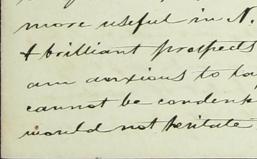 more useful in N.
& brilliant prospects
am anxious to
cannot be
would not hesitate